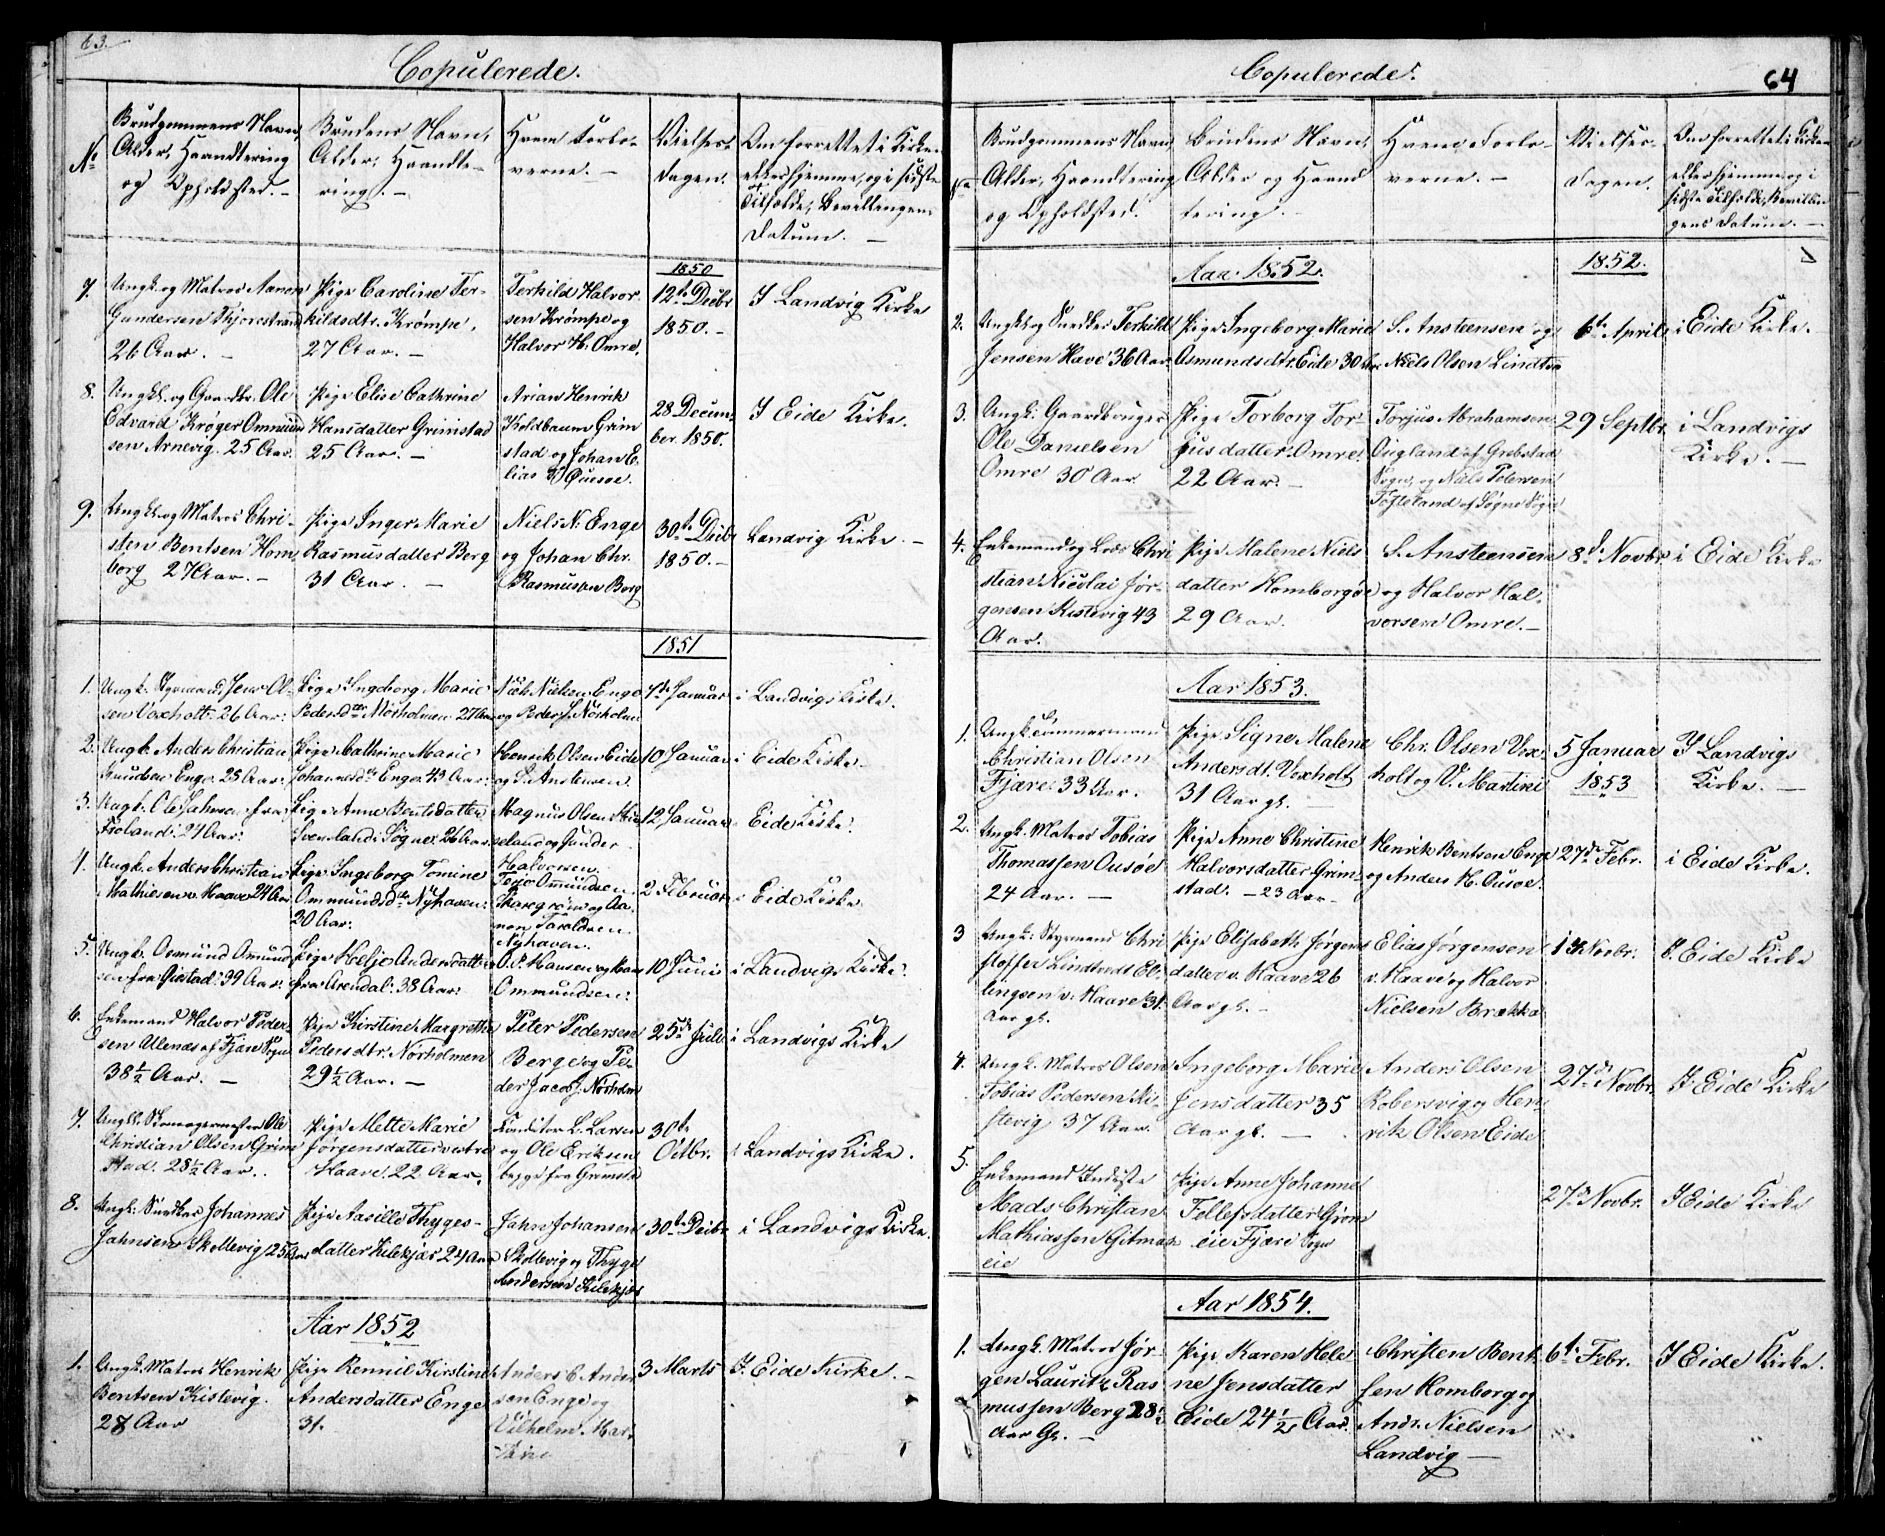 63.
Copulerede.
No
Brudgommens Navn,
Alder, Haandtering
og Opholdsted. –
Brudens Navn,
Alder, Haandte-
ring. –
Hvem Forlo-
verne. –
Vielses-
dagen.
Om forrettet i Kirken
eller hjemme, og i sidste
Tilfælde, Bevillingens
Datum. –
1850
7.
Ungk. og Matros Aanon
Gundersen
26 Aar. –
Pige Caroline Ter-
kildsdtr. Krømpe,
27 Aar. –
Terkild Halvor-
sen Krømpe og
Halvor H. Omre.
12te Decbr
1850. –
I Landvig Kirke
8.
Ungk. og Gaardbr. Ole
Edvard Krøger Ommund
sen Arnevig. 25 Aar.
Pige Elise Cathrine
Hansdatter Grimstad
25 Aar. –
Arian Henrik
Koldbaum Grim
stad og Johan E-
lias
28 Decem-
ber 1850.
I Eide Kirke.
9.
Ungk. og Matros Chri-
sten Bentsen Hom
borg 27 Aar. –
Pige Inger Marie
Rasmusdatter Berg
31 Aar. –
Niels N. Enge
og Johan Chr.
Rasmussen Berg
30te Decbr
1850. –
Landvig Kirke. –
1851
1.
Ungk. Styrmand Jens Ol-
sen Voxholt: 26 Aar:
Pige Ingeborg Marie
Pedersdtr Nörholmen 27 Aar
Niels Nielsen Enge
og Peder J. Nörholm
7de Januar
i Landvigs Kirke.
2.
Ungk. Anders Christian
Knudsen Enge. 25 Aar:
Pige Cathrine Marie
Johannesdtr Enge. 43 Aar:
Henrik Olsen Eide
og S. Ansteensen
10 Januar
i Eide Kirke.
3.
Ungk. Ole Jahnsen fra
Froland: 27 Aar:
Pige Anne Bentsdatter
Svenland: Søgne: 26 Aar.
Magnus Olsen
og Gunder
Halvorsen.
12 Januar
Eide Kirke.
4.
Ungk. Anders Christian
Mathiesen v. Haave 24 Aar
Pige Ingeborg Tomine
Ommundsdtr Nyhaven:
20 Aar:
Terje Ommundsen
og Aa-
non Taraldsen
Nyhaven.
2 Februar
i Eide Kirke
5.
Ungk. Osmund Omund
sen fra Qvistad: 39 Aar:
Pige Helje Andersdatter
fra Arendal: 38 Aar:
O. P. Hansen og
Ommundsen:
10 Juni
i Landvigs Kirke.
6.
Enkemand Halvor Peder-
sen Allenæs af Fjære Sogn
38½ Aar. –
Pige Kirstine Margrethe
Pedersdtr. Nörholmen
29½ Aar. –
Peter Pedersen
Berge og Pe-
der Jacobs. Nörholm
25de Juli
i Landvigs Kirke
7.
Ungk. Skomagermester Ole
Christian Olsen Grim
stad. 28½ Aar.
Pige Mette Marie
Jørgensdatter vestre
Haave. 22 Aar.
Conditor L. Larsen
og Ole Eriksen
begge fra Grimstad
30te
Octbr.
i Landvigs Kirke.
8.
Ungk. Snedker Johannes
Jahnsen Skollevig 25 Aar
Pige Aasille Thyges-
datter Kilekjær 24 Aar
Jahn Johansen
Skollevig og Thyge
Andersen Kilekjær
30te Decbr
i Landvigs Kirke.
Aar 1852
1.
Ungk. Matros Henrik
Bentsen Kistevig.
28 Aar
Pige Rennil Kirstine
Andersdatter Enge
31.
Anders C. Ander
sen Enge og
Vilhelm Mar-
tine
3 Marts
I Eide Kirke. –
Copulerede.
64
No
Brudgommens Navn,
Alder, Haandtering
og Opholdsted.
Brudens Navn,
Alder og Haand
tering. –
Hvem Forlo-
verne. –
Vielses-
dagen.
Om forrettet i Kirken
eller hjemme, og i
sidste Tilfælde, Bevillin
gens Datum. –
Aar 1852.
1852.
2.
Ungk. og Snedker Terkild
Jensen Have 36 Aar.
Pige Ingeborg Marie
Osmundsdtr. Eide 30 Aar
S. Ansteensen og
Niels Olsen Lindtveit
6te April
i Eide Kirke.
3.
Ungk: Gaardbruger
Ole Danielsen
Omre 30 Aar
Pige Torborg Tor-
jusdatter Omre.
22 Aar. –
Torjus Abrahamsen
Ougland af Grebstad
Sogn, og Niels Petersen
Tofteland af Søgne Sogn
29 Septbr.
i Landvigs
Kirke. –
4.
Enkemand og Lods Chri
stian Nicolai Jør-
gensen Kistevig 43
Aar.
Pige Malene Niels
datter Homborgöe
29 Aar.
S. Ansteensen
og Halvor Hal-
vorsen Omre. –
8de Novbr.
i Eide Kirke
Aar 1853.
1.
Ungk. Tömmermand
Christian Olsen
Fjære. 33 Aar.
Pige Signe Malene
Andersdt. Voxholt
31 Aar gl. –
Chr. Olsen Vox-
holt og V. Martini
5 Januar
1853
I Landvigs
Kirke. –
2.
Ungk. Matros Tobias
Thomassen Ousöe
24 Aar. –
Pige Anne Christine
Halvorsdatter Grim-
stad. – 23 Aar –
Henrik Bentsen Enge
og Anders H. Ousöe.
27de Febr.
i Eide Kirke.
3
Ungk: Styrmand Chri
stoffer Lindtvedt El-
lingsen v: Haave 31.
Aar gl.
Pige Elisabeth Jørgens
datter v. Haave 26
Aar gl. –
Elias Jørgensen
v. Haave og Halvor
Nielsen Brække
Novbr.
I. Eide Kirke
4.
Ungk. Matros Olsen
Tobias Pedersen Ki-
stevig 37 Aar.
Ingeborg Marie
Jensdatter 35
Aar gl. –
Anders Olsen
Robersvig og Hen
rik Olsen Eide
27de Novbr.
I. Eide Kirke
5.
Enkemand Inderste
Mads Christian
Mathiassen Gitmar
eie
Pige Anne Johanne
Tellefsdatter Grom
eie Fjære Sogn
27de Novbr.
I Eide Kirke
Aar 1854.
1.
Ungk. Matros Jør-
gen Lauritz Ras
mussen Berg 28½
Aar Gl. –
Pige Karen Hele
ne Jensdatter
Eide 24½ Aar.
Christen Bent
sen Homborg og
Andr. Nielsen
Landvig –
6te Febr.
I Eide Kirke.